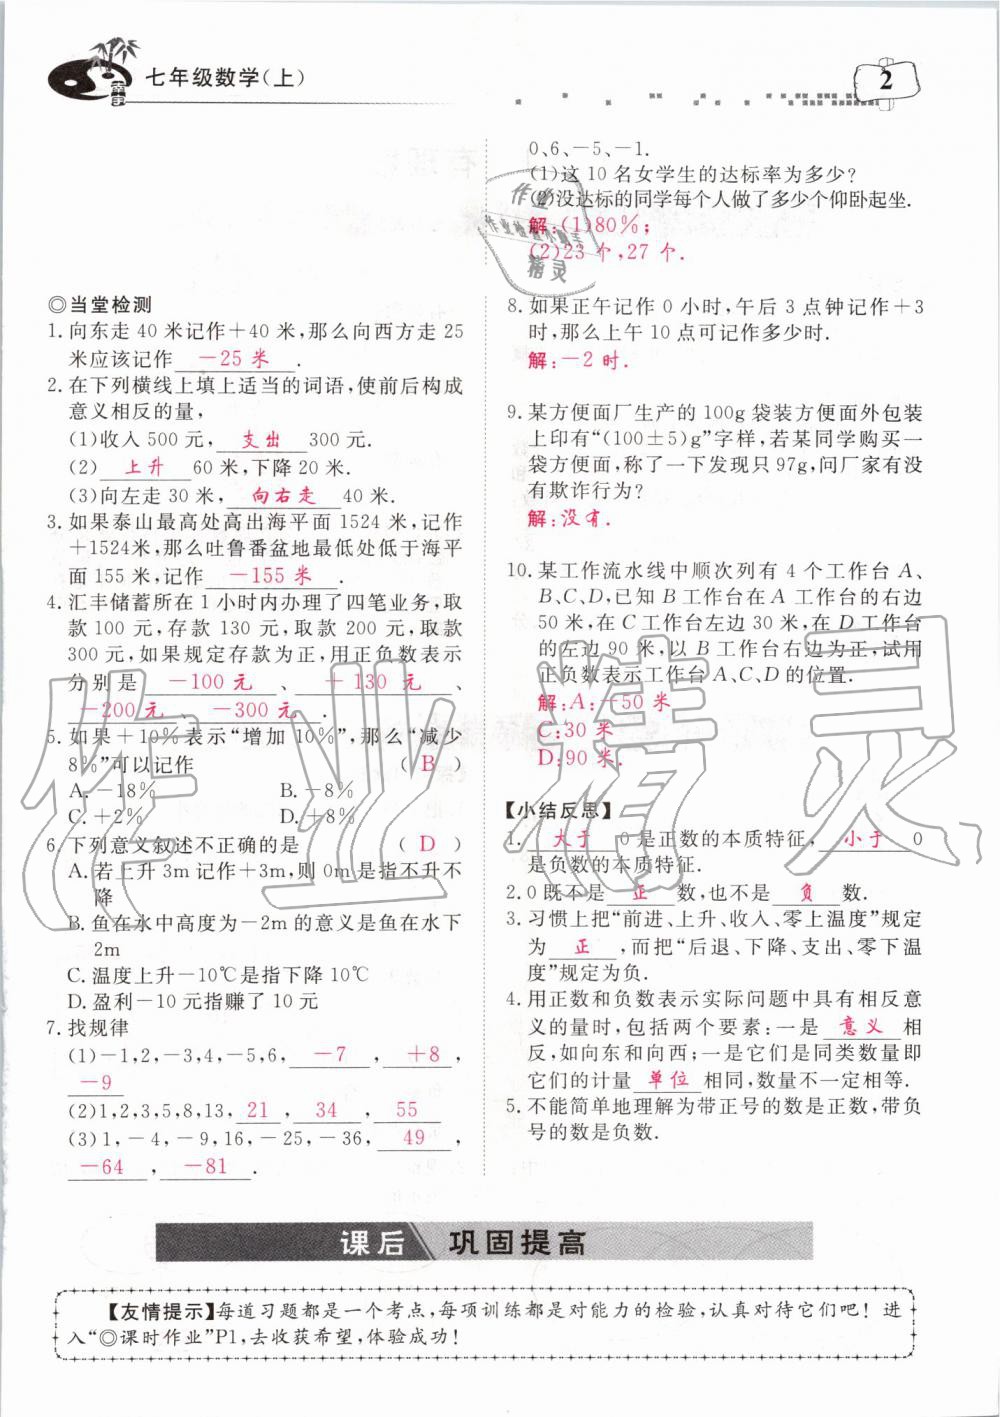 七年级数学(上)
2
◎当堂检测
1. 向东走 40 米记作＋40 米,那么向西方走 25
米应该记作 －25 米 .
2. 在下列横线上填上适当的词语,使前后构成
意义相反的量,
(1)收入 500 元, 支出 300 元.
(2) 上升 60 米,下降 20 米.
(3)向左走 30 米, 向右走 40 米.
3. 如果泰山最高处高出海平面 1524 米,记作
＋1524米,那么吐鲁番盆地最低处低于海平
面 155 米,记作 －155 米 .
4. 汇丰储蓄所在 1 小时内办理了四笔业务,取
款 100 元,存款 130 元,取款 200 元,取款
300 元,如果规定存款为正,用正负数表示
分别是 －100 元 、 ＋130 元 、
－200 元 、 －300 元 .
5. 如果＋10％表示“增加 10％”,那么“减少
8％”可以记作 ( B )
A. －18％ B. －8％
C. ＋2％ D. ＋8％
6. 下列意义叙述不正确的是 ( D )
A. 若上升 3m 记作＋3m,则 0m 是指不升不
降
B. 鱼在水中高度为－2m 的意义是鱼在水下
2m
C. 温度上升－10℃是指下降 10℃
D. 盈利－10 元指赚了 10 元
7. 找规律
(1)－1,2,－3,4,－5,6, －7 , ＋8 ,
－9
(2)1,2,3,5,8,13, 21 , 34 , 55
(3)1,－4,－9,16,－25,－36, 49 ,
－64 , －81 .
0、6、－5、－1.
(1)这 10 名女学生的达标率为多少?
(2)没达标的同学每个人做了多少个仰卧起坐.
解:(1)80％;
(2)23 个,27 个.
8. 如果正午记作 0 小时,午后 3 点钟记作＋3
时,那么上午 10 点可记作多少时.
解:－2 时.
9. 某方便面厂生产的 100g 袋装方便面外包装
上印有“(100±5)g”字样,若某同学购买一
袋方便面,称了一下发现只 97g,问厂家有没
有欺诈行为?
解:没有.
10. 某工作流水线中顺次列有 4 个工作台 A、
B、C、D,已知 B 工作台在 A 工作台的右边
50 米,在 C 工作台左边 30 米,在 D 工作台
的左边 90 米,以 B 工作台右边为正,试用
正负数表示工作台 A、C、D 的位置.
解:A:－50 米
C:30 米
D:90 米.
【小结反思】
1. 大于 0 是正数的本质特征, 小于 0
是负数的本质特征.
2. 0 既不是 正 数,也不是 负 数.
3. 习惯上把“前进、上升、收入、零上温度”规定
为 正 ,而把“后退、下降、支出、零下温
度”规定为负.
4. 用正数和负数表示实际问题中具有相反意
义的量时,包括两个要素:一是 意义 相
反,如向东和向西;一是它们是同类数量即
它们的计量 单位 相同,数量不一定相等.
5. 不能简单地理解为带正号的数是正数,带负
号的数是负数.
课后 巩固提高
【友情提示】每道习题都是一个考点,每项训练都是对能力的检验,认真对待它们吧! 进
入“◎课时作业”P1,去收获希望,体验成功!
作业精灵